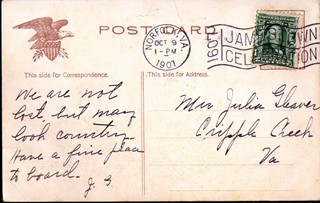 POST CARD
NORFOLK, VA.
OCT 9
1-PM
1907
1607
JAMESTOWN
This side for Correspondence.
This side for Address.
We are not
lost, but may
look country.
Have a fine place
to board.
J. G.
Mrs Julia Gleaves
Cripple Creek
Va